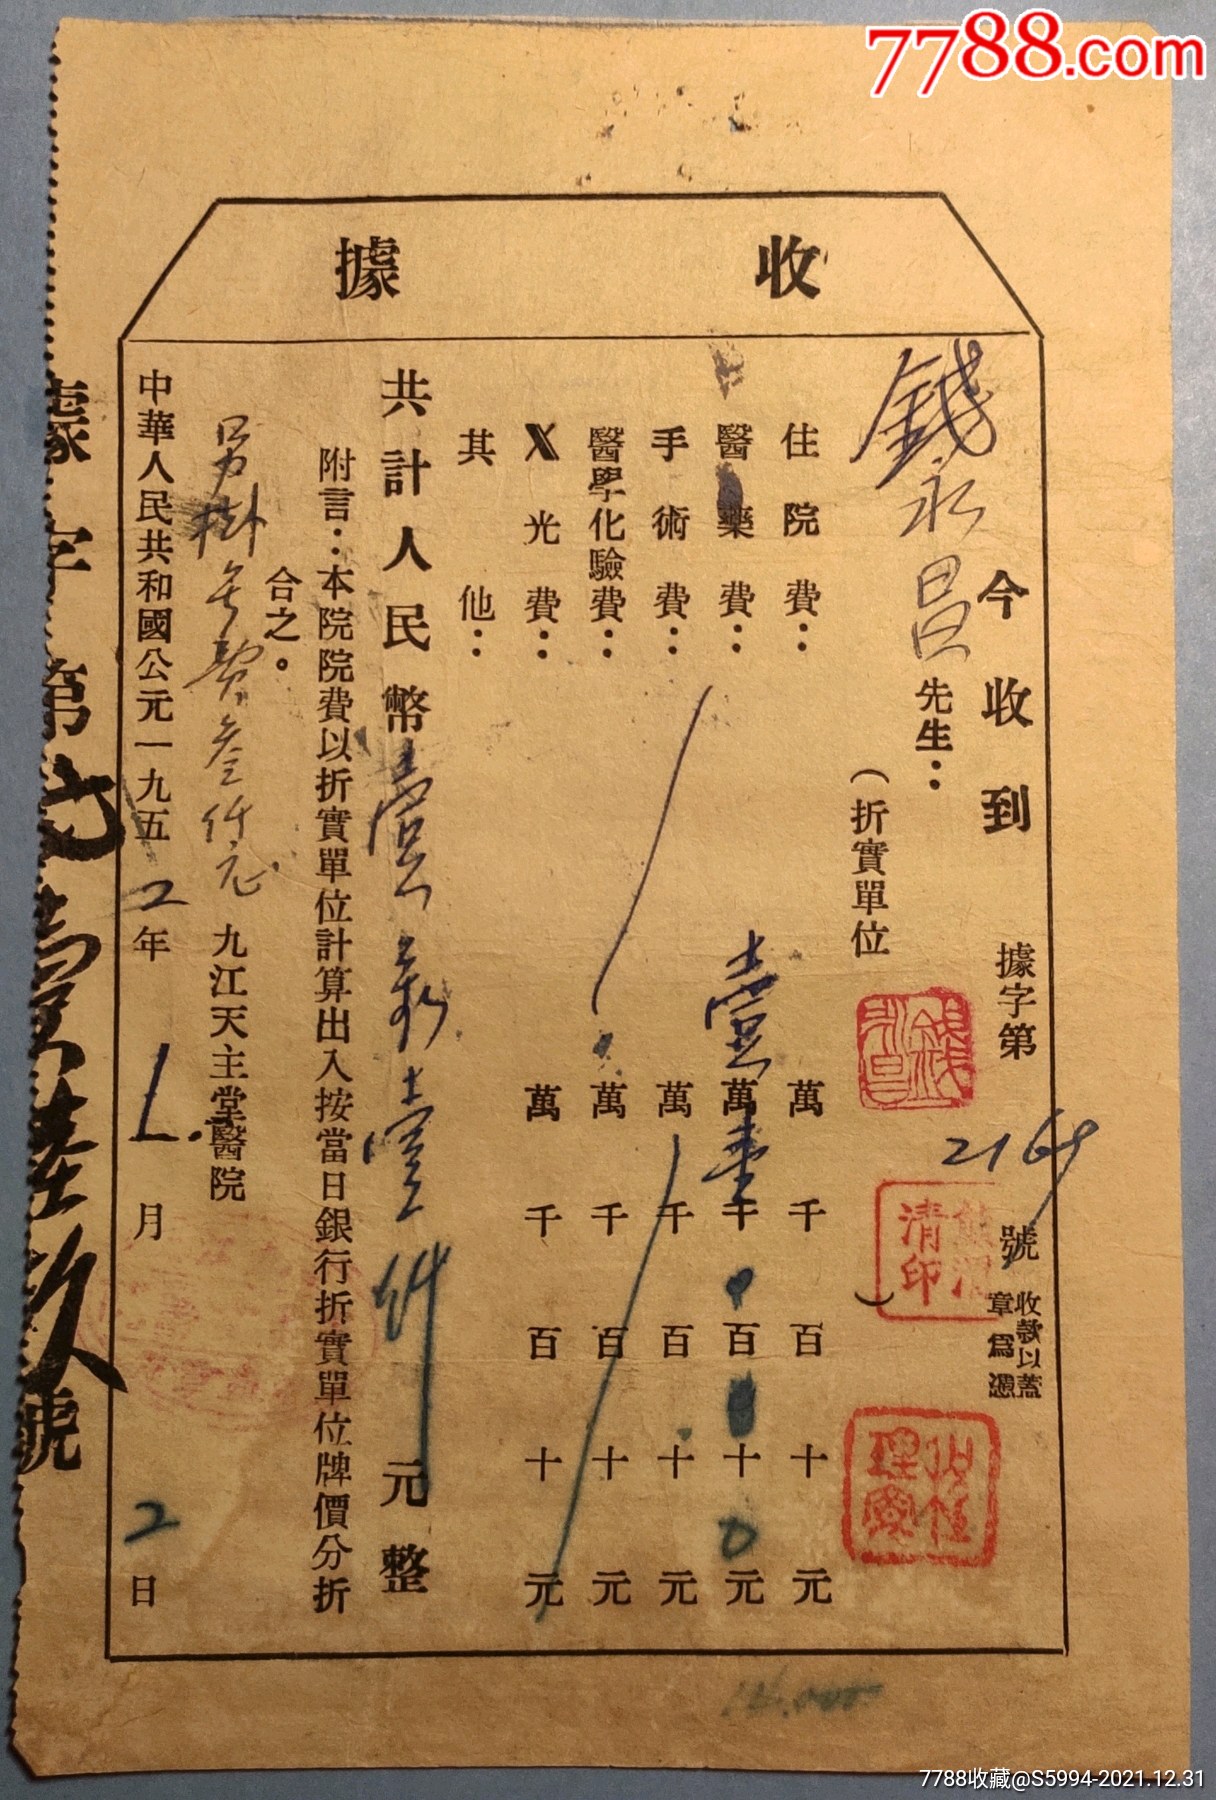 7788.com
收據
今收到
錢永昌先生：
據字第2169號
收款以蓋章為憑
（折實單位）
住院費：萬千百十元
醫藥費：壹萬壹千百十0元
手術費：萬千百十元
醫學化驗費：萬千百十元
X光費：萬千百十元
其他：
共計人民幣壹萬壹仟元整
附言：本院院費以折實單位計算出入按當日銀行折實單位牌價分折合之。
另掛号費叁仟元
九江天主堂醫院
中華人民共和國公元一九五2年1月2日
據字第 壹陸玖號
清印
14.000
7788收藏@S5994-2021.12.31